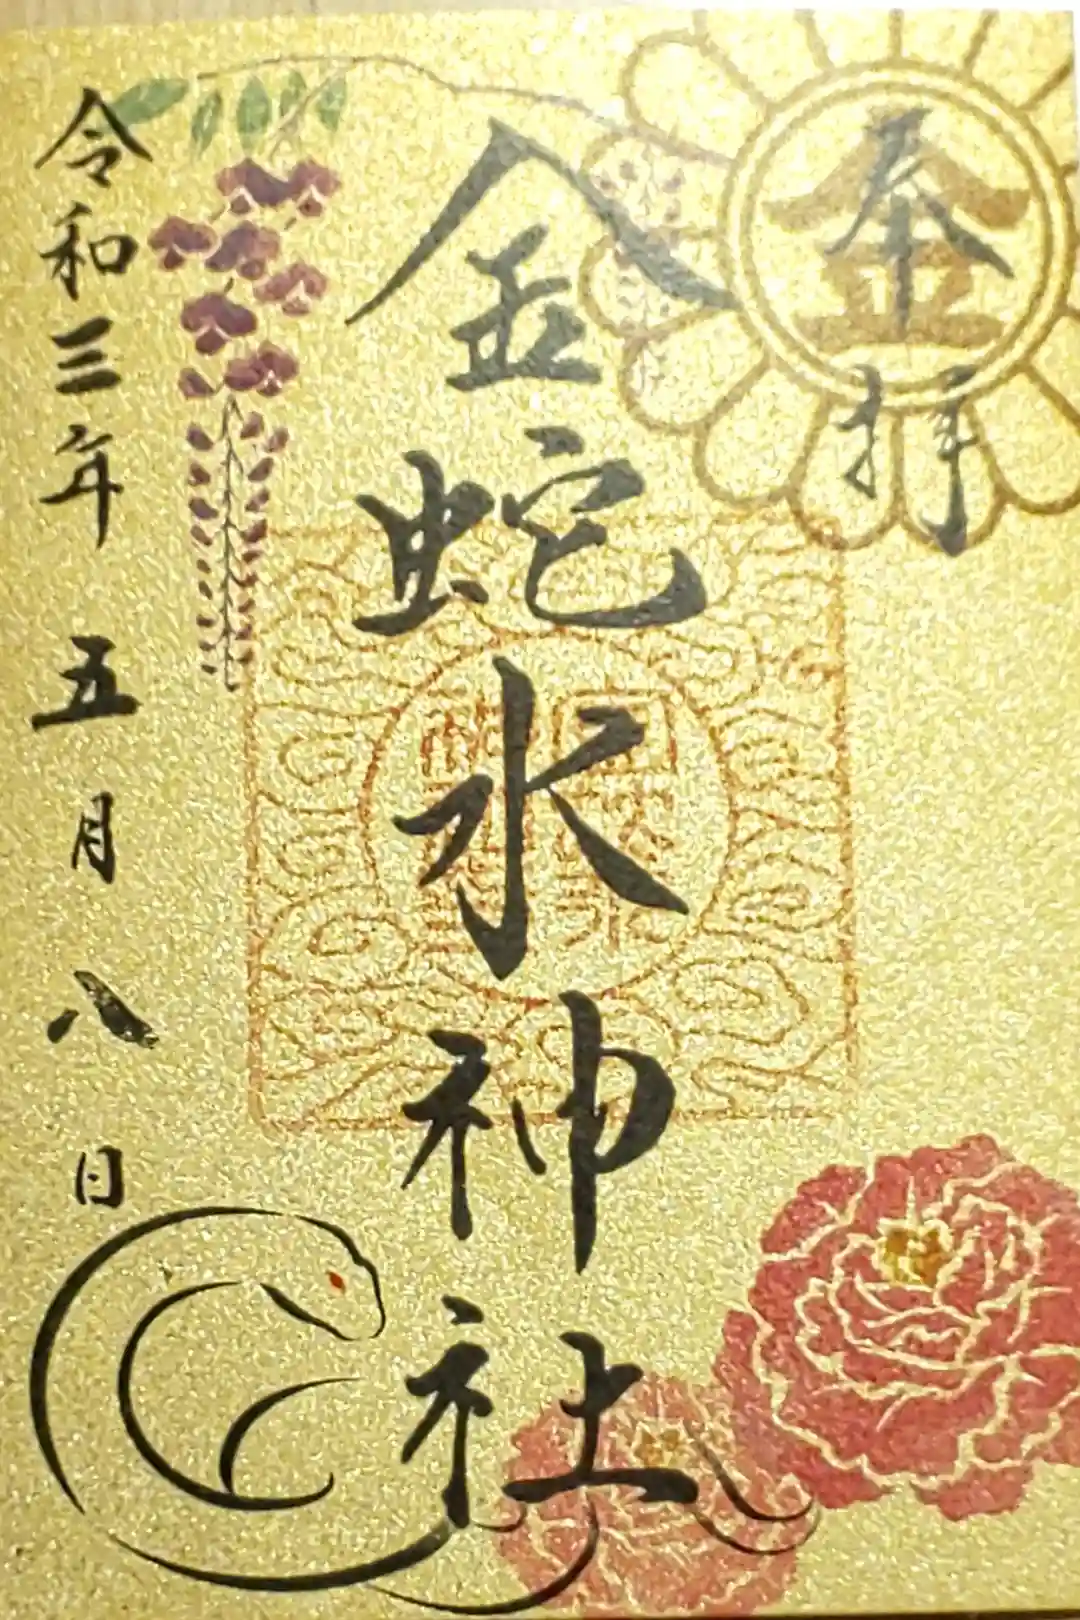 奉拝
金
金蛇水神社
令和三年五月八日